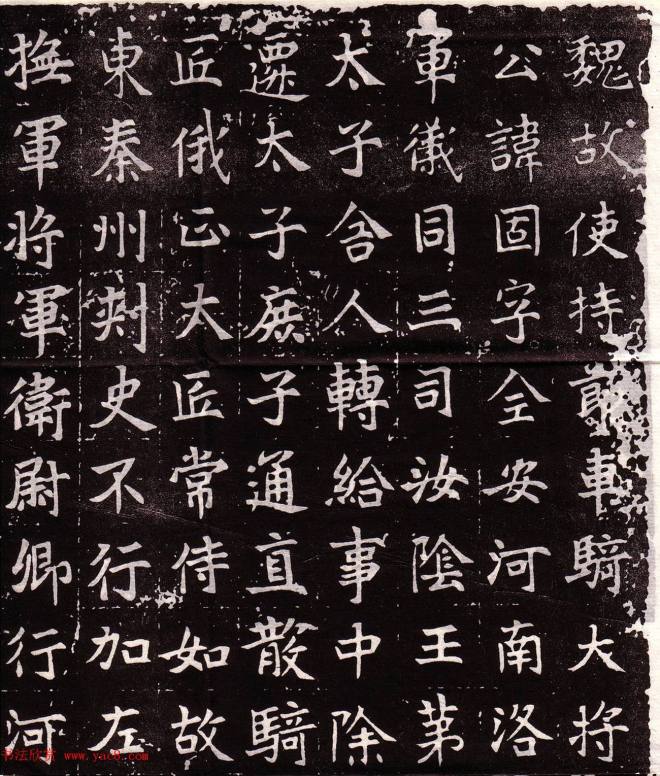 魏故使持節車騎大将
公諱固字全安河南洛
軍儀同三司汝陰王第
太子舍人轉給事中除
遷太子庶子通直散騎
匠俄正大匠常侍如故
東秦州刺史不行加左
撫軍将軍衛尉卿行河
书法欣赏 www.yac8.com